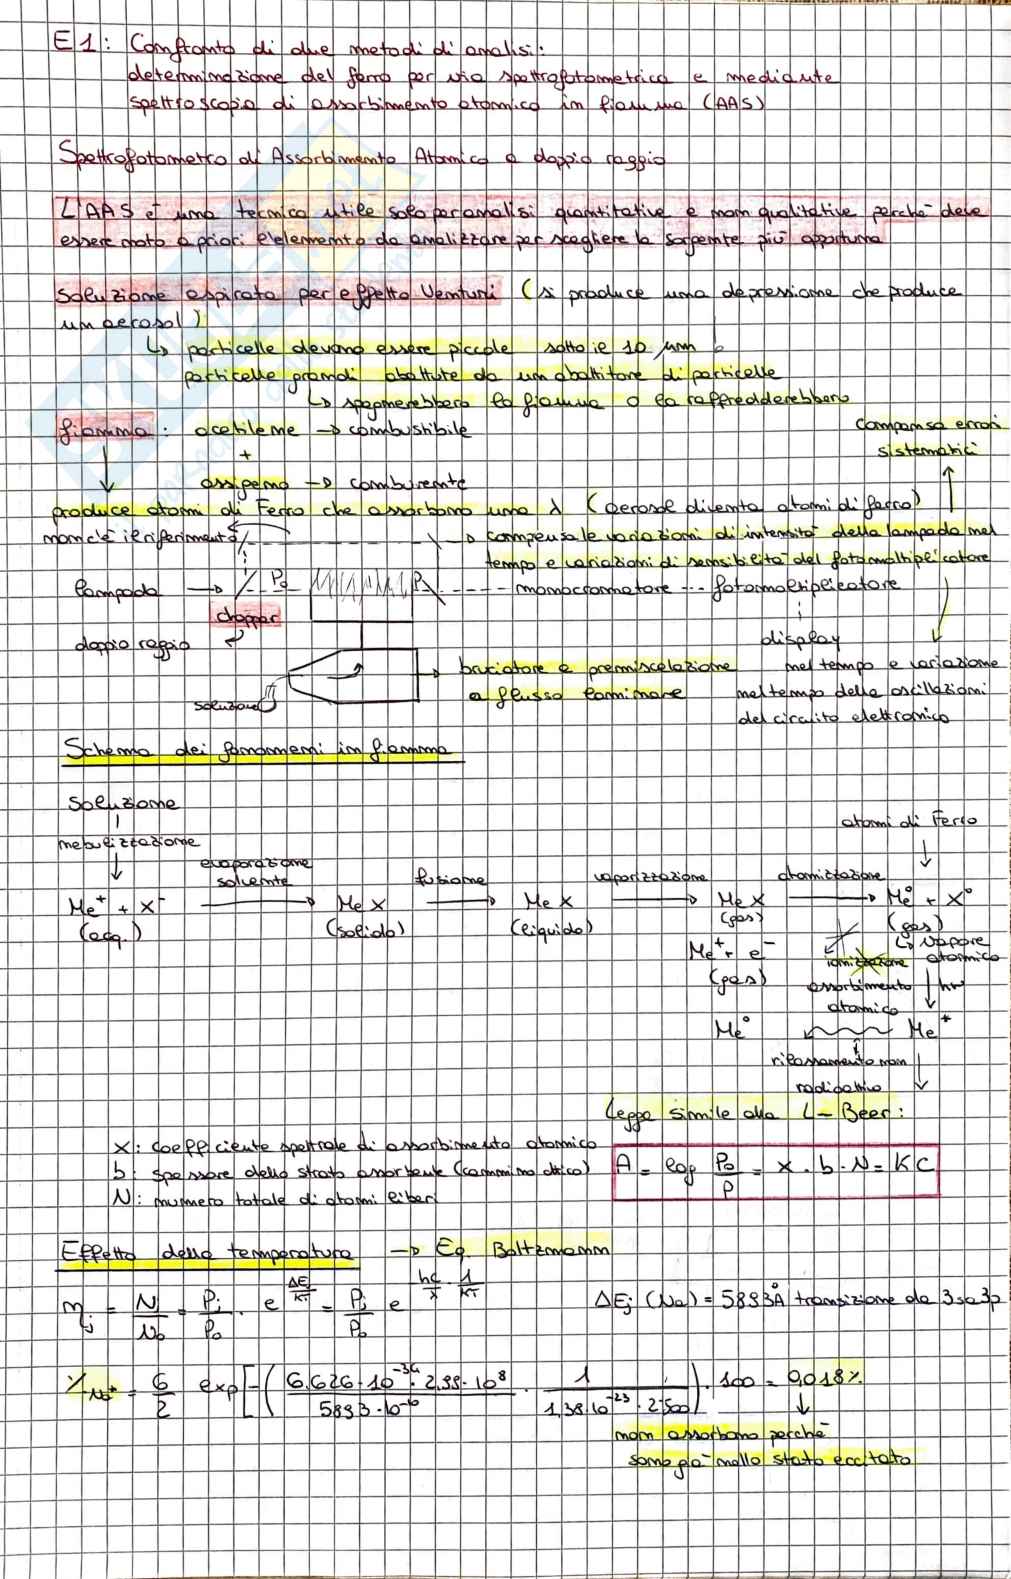 E1: Confronto di due metodi di analisi:
determinazione del ferro per via spettrofotometrica e mediante
spettroscopia di assorbimento atomico in fiamma (AAS)
Spettrofotometro di Assorbimento Atomico a doppio raggio
L'AAS è una tecnica utile solo per analisi quantitative e non qualitative perchè deve
essere noto a priori l'elemento da analizzare per scegliere la sorgente più opportuna
Soluzione aspirata per effetto Venturi (si produce una depressione che produce
un aerosol)
↳ particelle devono essere piccole sotto ie 10 μm
particelle grandi abattute da un abattitore di particelle
↳ spegnerebbero la fiamma o la raffredderebbero
fiamma: acetilene → combustibile
compensa errori
sistematici
+
ossigeno → comburente
produce atomi di Ferro che assorbono una λ (aerosol diventa atomi di ferro)
non c'è il riferimento
→ compensa le variazioni di intensità della lampada nel
tempo e variazioni di sensibilità del fotomoltiplicatore
lampada → P₀ P ---- monocromatore --- fotomoltiplicatore
chopper
doppio raggio
display
bruciatore a premiscelazione
a flusso laminare
soluzione
nel tempo e variazione
nel tempo delle oscillazioni
del circuito elettronico
Schema dei fenomeni in fiamma
soluzione
nebulizzazione
atomi di Ferro
evaporazione
solvente
fusione
vaporizzazione
atomizzazione
Me⁺ + X⁻ → MeX → MeX → MeX → Me⁰ + X⁰
(acq.) (solido) (liquido) (gas) (gas)
↳ vapore
atomico
Me⁺ + e⁻
(gas)
ionizzazione
assorbimento
atomico
hν
Me⁰
Me*
rilassamento non
radiattivo
Legge simile alla L-Beer:
X: coefficiente spettrale di assorbimento atomico
b: spessore dello strato assorbente (cammino ottico)
N: numero totale di atomi liberi
A = log P₀/P = x · b · N = KC
Effetto della temperatura → Eq. Boltzmann
nj = Nj/N₀ = Pj/P₀ · e^(ΔEj/KT) = Pj/P₀ e^(hc/λ · 1/KT)
ΔEj (Na) = 5893Å transizione da 3s a 3p
%Na* = 6/2 exp[-(6,626·10⁻³⁴ · 2,99·10⁸ / 5893·10⁻¹⁰ · 1 / 1,38·10⁻²³ · 2500)] · 100 = 0,018%
non assorbono perchè
sono già nello stato eccitato